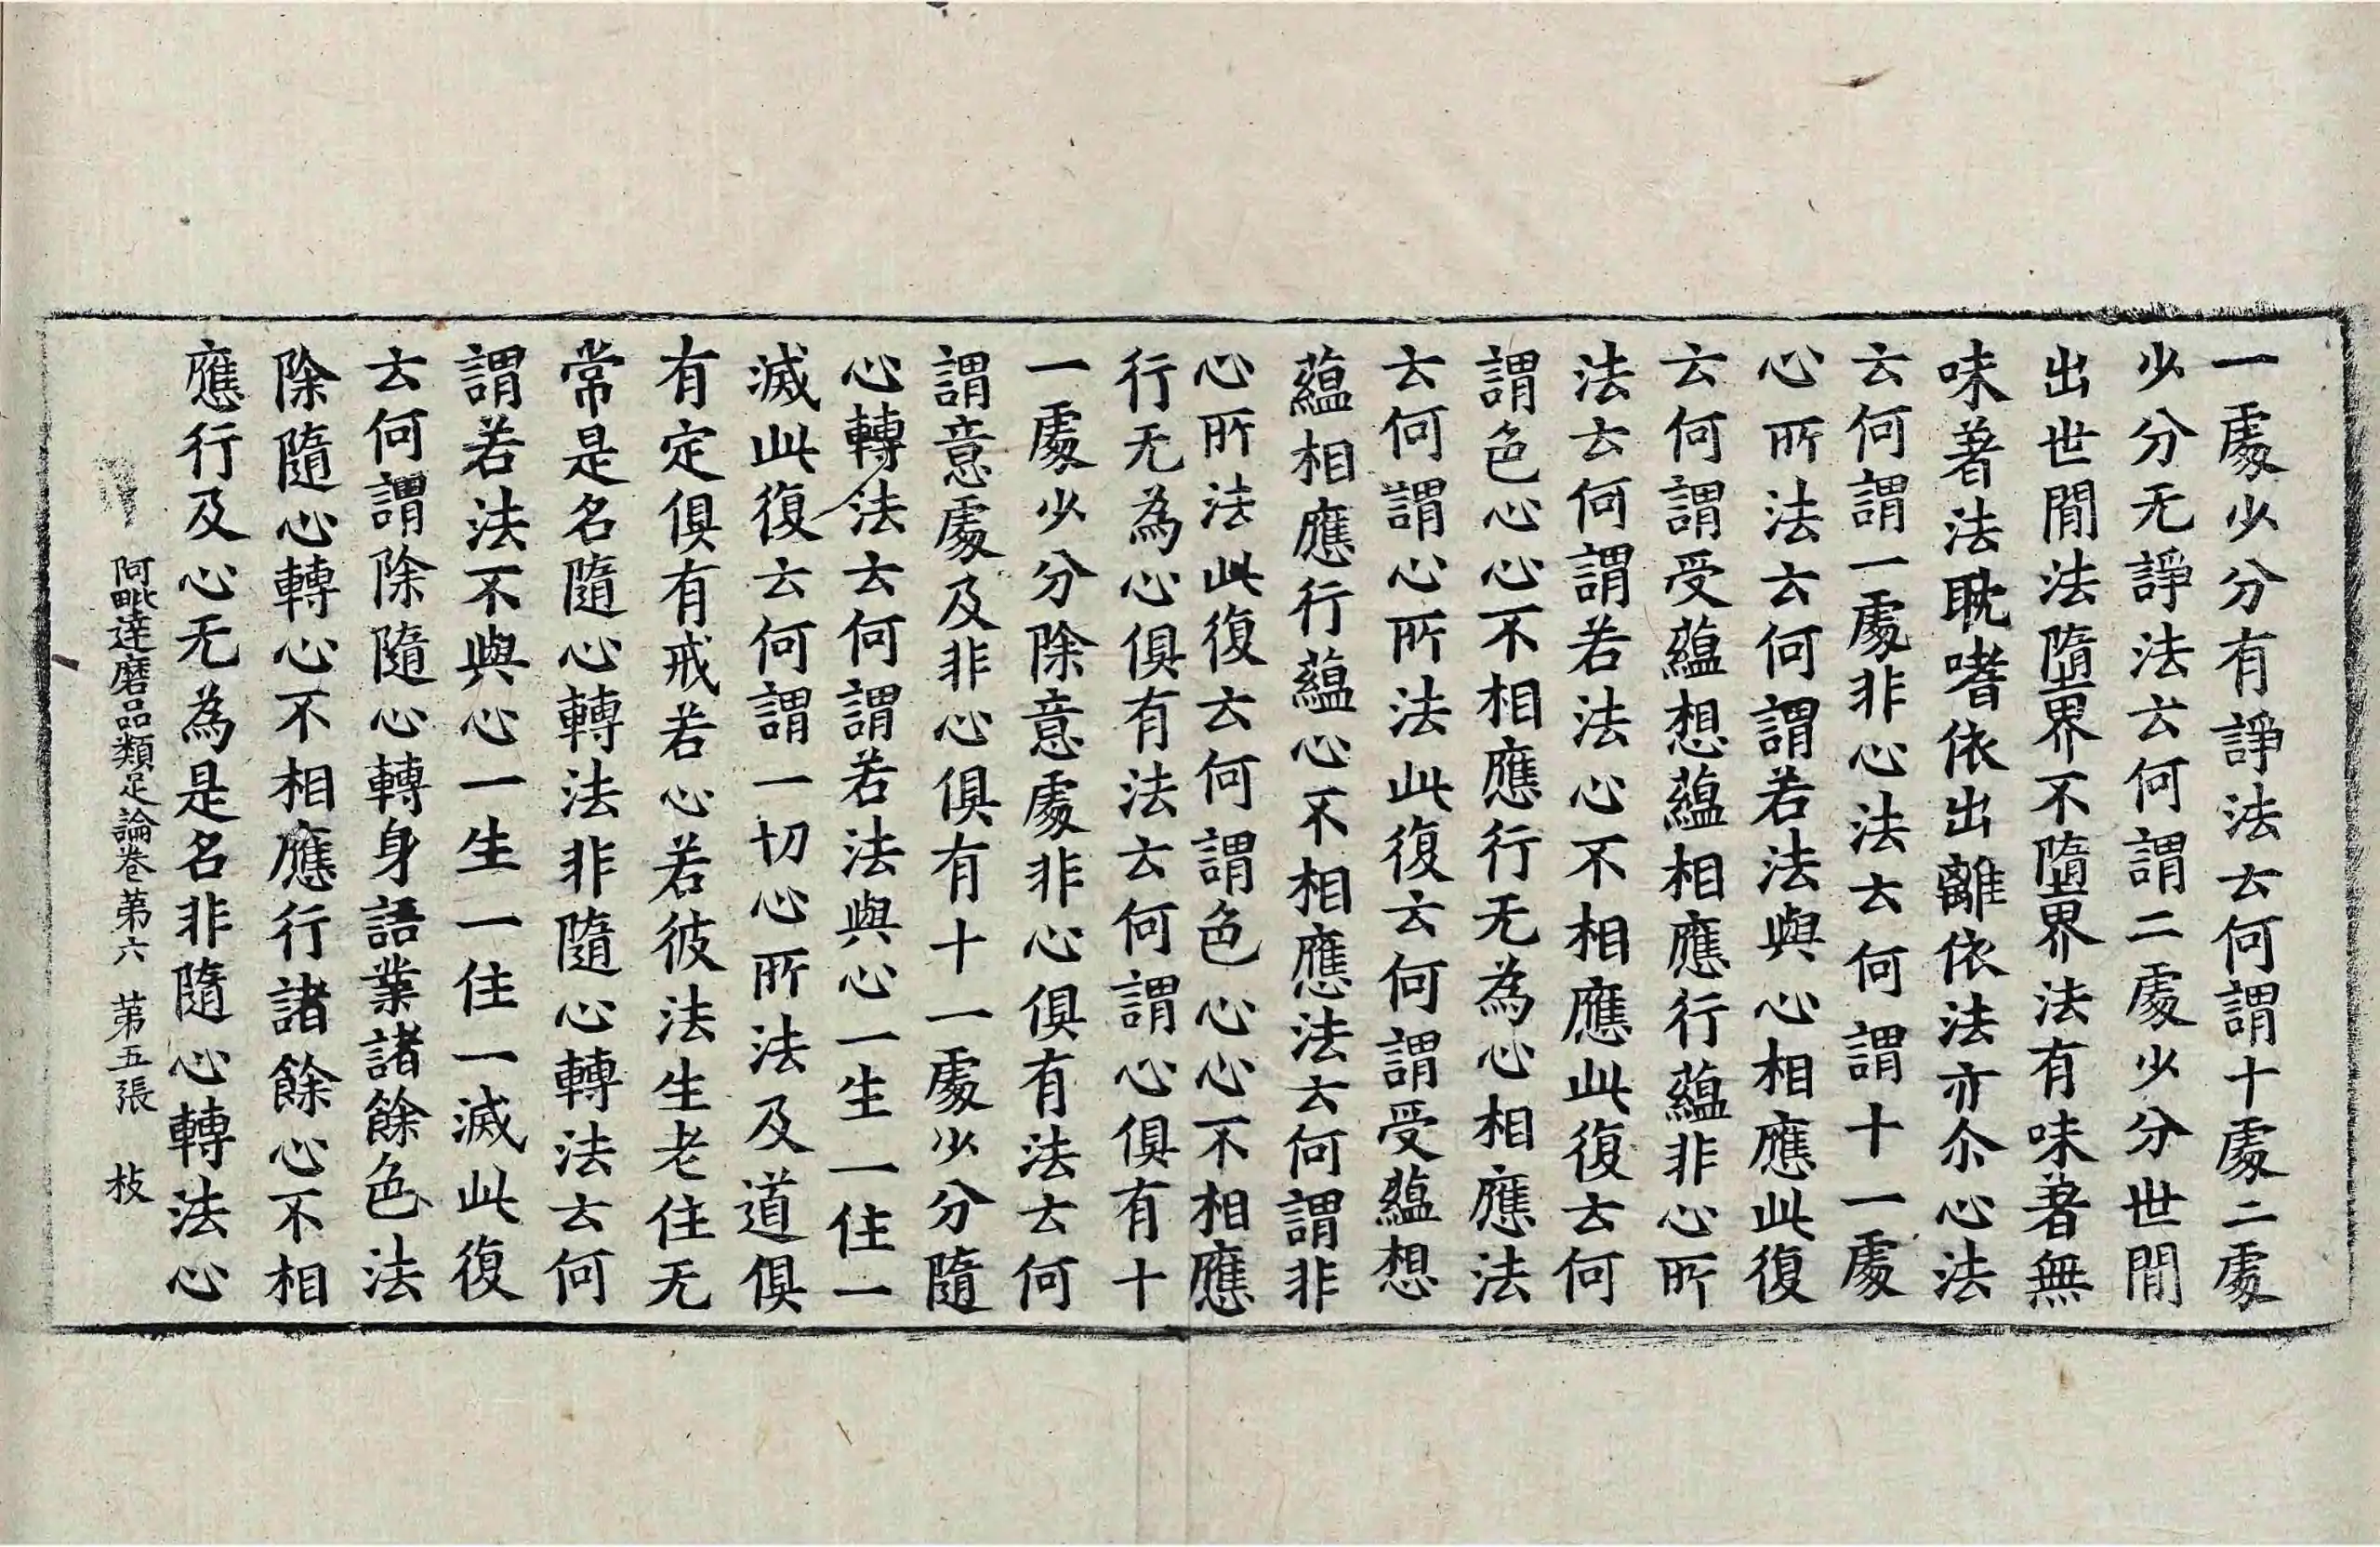 一處少分有諍法去何謂十處二處
少分无諍法去何謂二處少分世閒
出世閒法墮界不墮界法有味著無
味著法耽嗜依出離依法亦尒心法
去何謂一處非心法去何謂十一處
心所法去何謂若法與心相應此復
去何謂受蘊想蘊相應行蘊非心所
法去何謂若法心不相應此復去何
謂色心心不相應行无為心相應法
去何謂心所法此復去何謂受蘊想
蘊相應行蘊心不相應法去何謂非
心所法此復去何謂色心心不相應
行无為心俱有法去何謂心俱有十
一處少分除意處非心俱有法去何
謂意處及非心俱有十一處少分隨
心轉法去何謂若法與心一生一住一
滅此復去何謂一切心所法及道俱
有定俱有戒若心若彼法生老住无
常是名隨心轉法非隨心轉法去何
謂若法不與心一生一住一滅此復
去何謂除隨心轉身語業諸餘色法
除隨心轉心不相應行諸餘心不相
應行及心无為是名非隨心轉法心
阿毗達磨品類足論卷第六 第五張 枝